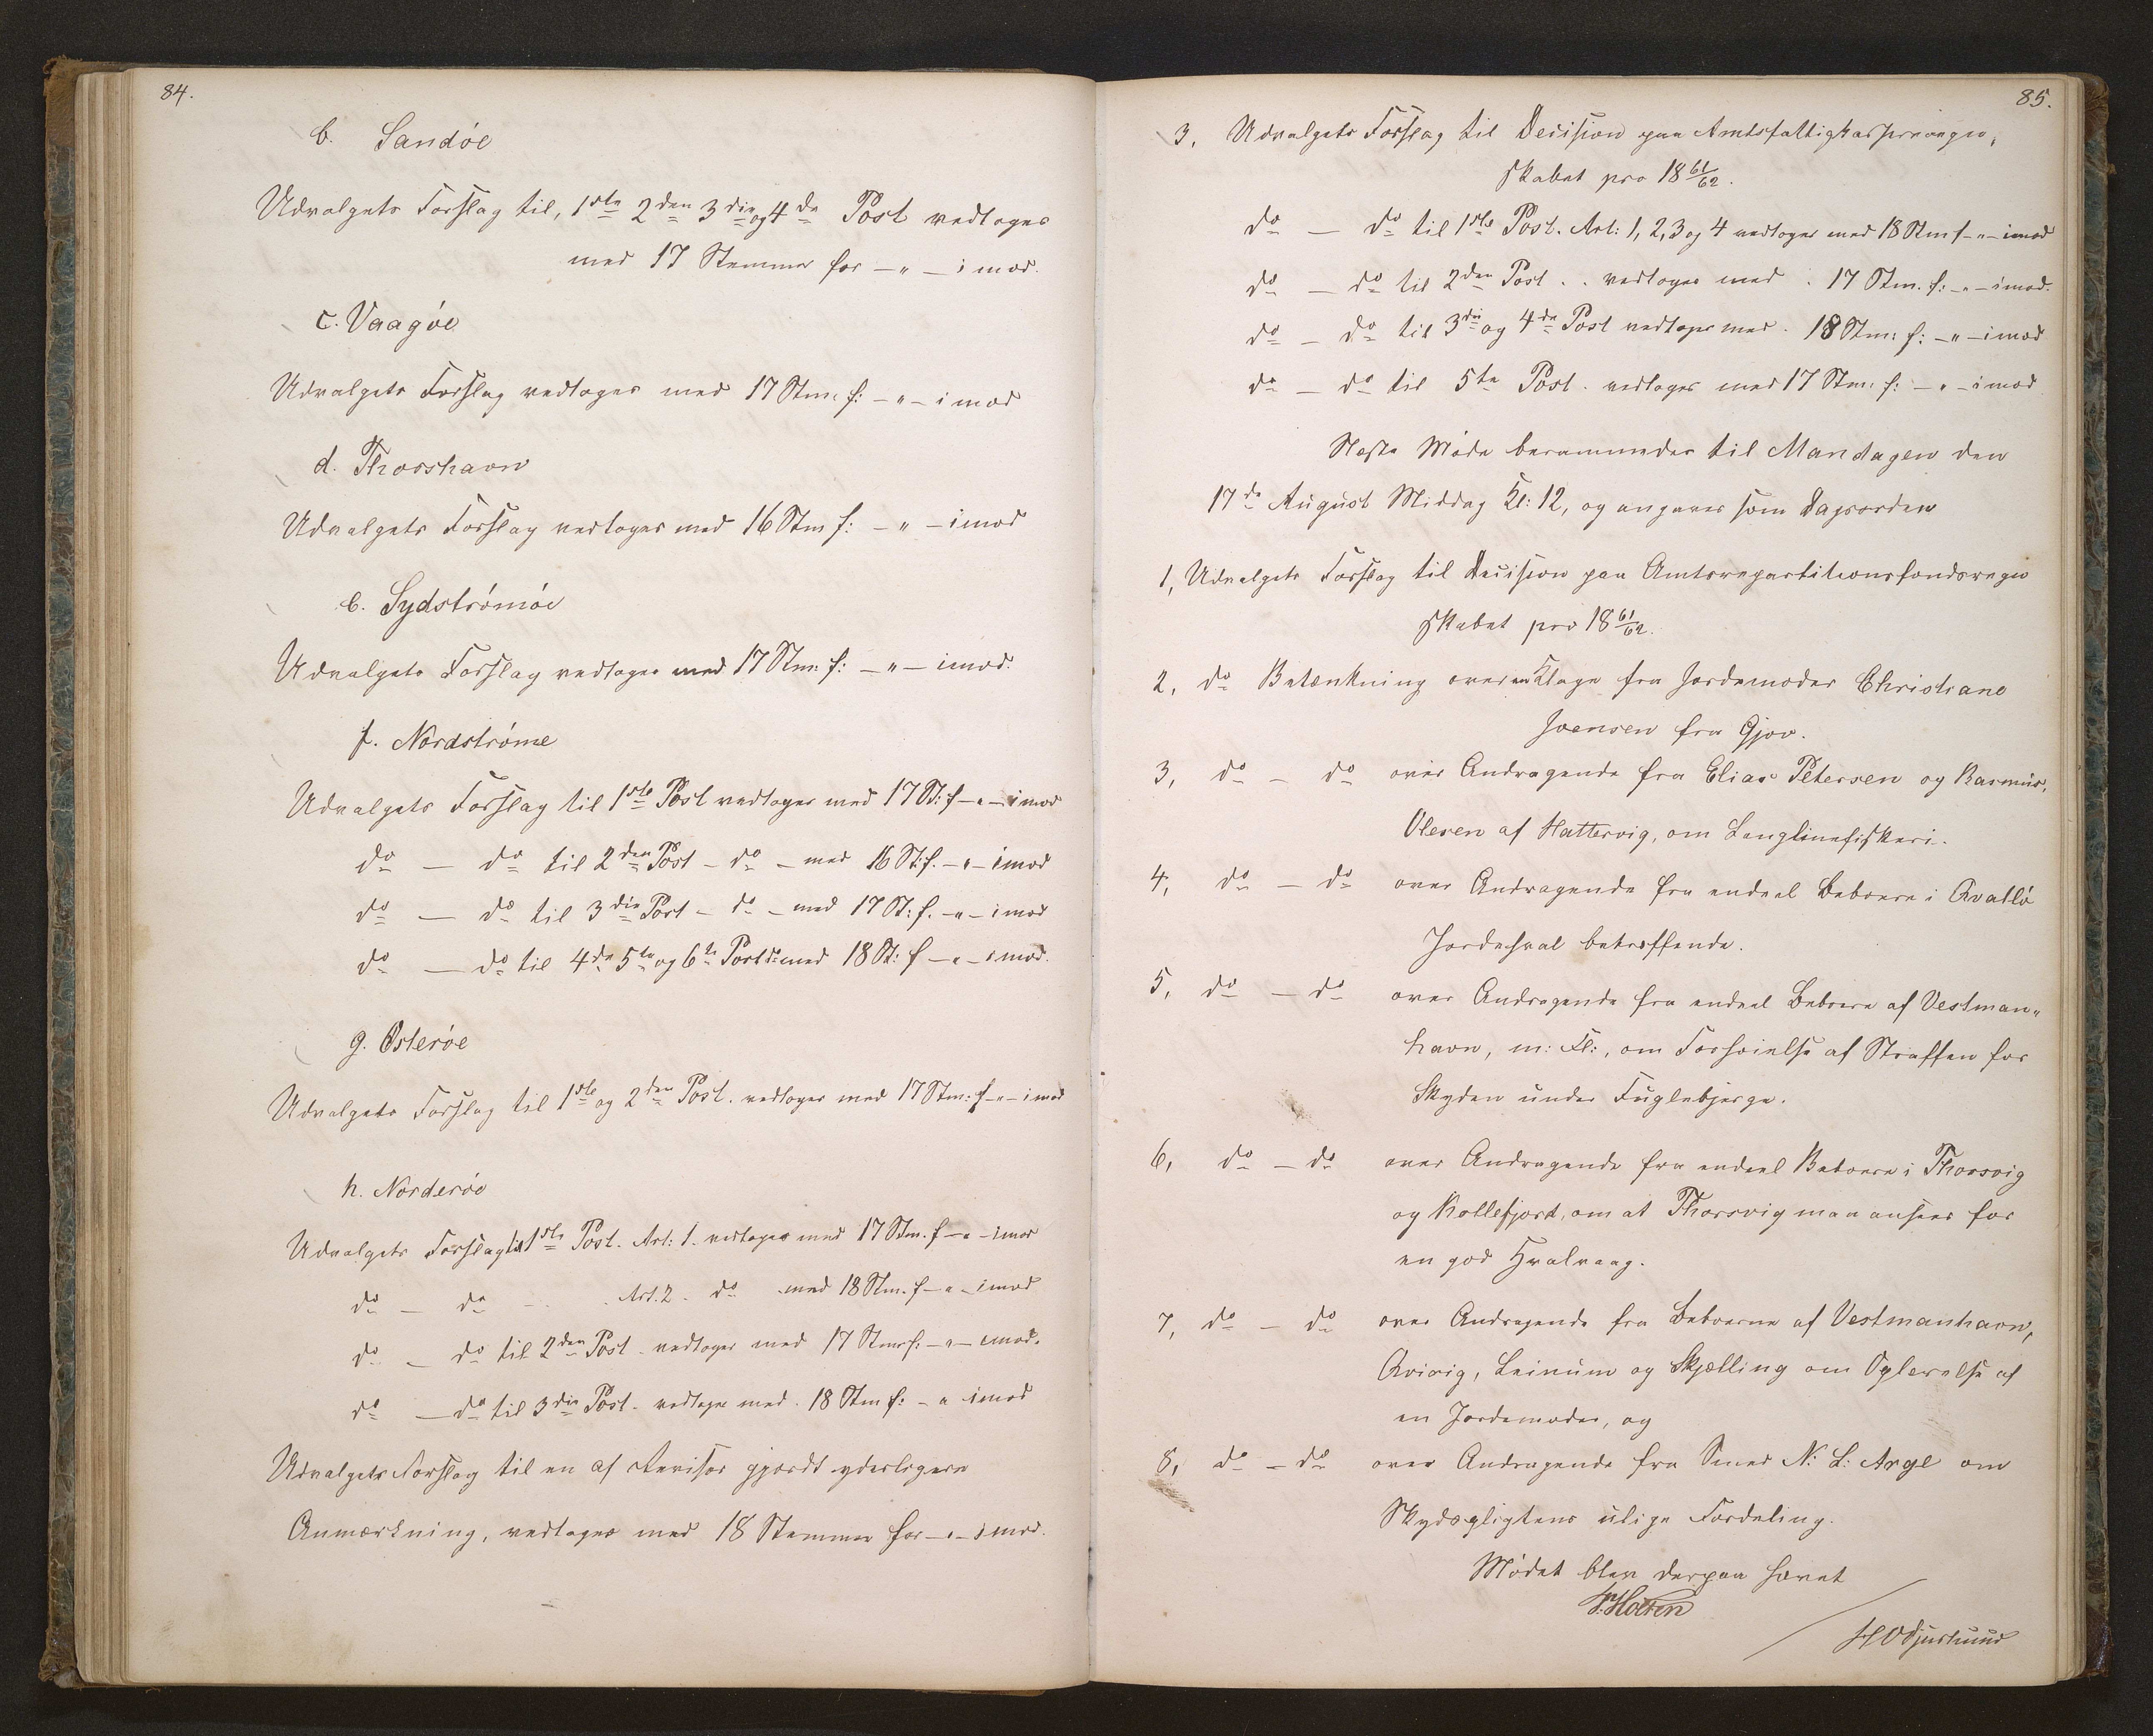 84.
b. Sandøe
Udvalgets Forslag til, 1ste 2den 3die og 4de Post vedtoges
med 17 Stemmer for – " – imod.
c. Vaagøe
Udvalgets Forslag vedtoges med 17 Stm. f: – " – imod
d. Thorshavn
Udvalgets Forslag vedtoges med 16 Stm f: – " – imod
e. Sydstrømøe
Udvalgets Forslag vedtoges med 17 Stm: f: – " – imod.
f. Nordstrøme
Udvalgets Forslag til 1ste Post vedtoges med 17 St: f – " – imod
do – do til 2den Post – do – med 16 St: f. – " – imod
do – do til 3die Post – do – med 17 St: f. – " – imod
do – do til 4de 5te og 6te Post do med 18 St: f – " – imod.
g. Østerøe
Udvalgets Forslag til 1ste og 2den Post. vedtoges med 17 Stm: f – " – imod
h. Norderøe
Udvalgets Forslag til 1ste Post. Art: 1. vedtoges med 17 Stm. f – " – imod
do – do – . . Art. 2 . do . med 18 Stm. f – " – imod
do – do til 2den Post – vedtoges med 17 Stm f: – " – imod.
do – do til 3die Post – vedtoges med . 18 Stm f: – " imod
Udvalgets Forslag til en af Revisor gjordt yderligere
Anmærkning, vedtoges med 18 Stemmer for – " – imod.
85.
3, Udvalgets Forslag til Decision paa Amtsfattigkasseregn,
skabet pro 18 61/62.
do – do til 1ste Post. Art: 1, 2, 3 og 4 vedtoges med 18 Stm f – " – imod
do – do til 2den Post . . vedtoges med . 17 Stm. f: – " – imod.
do – do til 3die og 4de Post vedtoges med . 18 Stm: f: – " – imod
do – do til 5te Post . vedtoges med 17 Stm: f: – " – imod
Næste Møde berammedes til Mandagen den
17de August Middag Kl: 12, og angaves som Dagsorden
1, Udvalgets Forslag til Decision paa Amtsrepartitionsfondsregn
skabet pro 18 61/62.
2, do Betænkning over en Klage fra Jordemoder Christiane
Joensen fra Gjov.
3, do – do over Andragende fra Elias Petersen og Rasmus,
Olesen af Hattervig, om Langlinefiskeri.
4, do – do over Andragende fra endeel Beboere i Qvalbø
Jordehval betreffende.
5, do – do over Andragende fra endeel Beboere af Vestman„
havn, m: Fl:, om Forhøielse af Straffen for
Skyden under Fuglebjerge.
6, do – do over Andragende fra endeel Beboere i Thorsvig
og Kollefjord, om at Thorsvig maa ansees for
en god Hvalvaag.
7, do – do over Andragende fra Beboerne af Vestmanhavn,
Qvivig, Leinum og Skjælling om Oplærelse af
en Jordemoder, og
8, do – do over Andragende fra Smed N: L: Arge om
Skydspligtens ulige Fordeling.
Mødet blev derpaa hævet
Holten